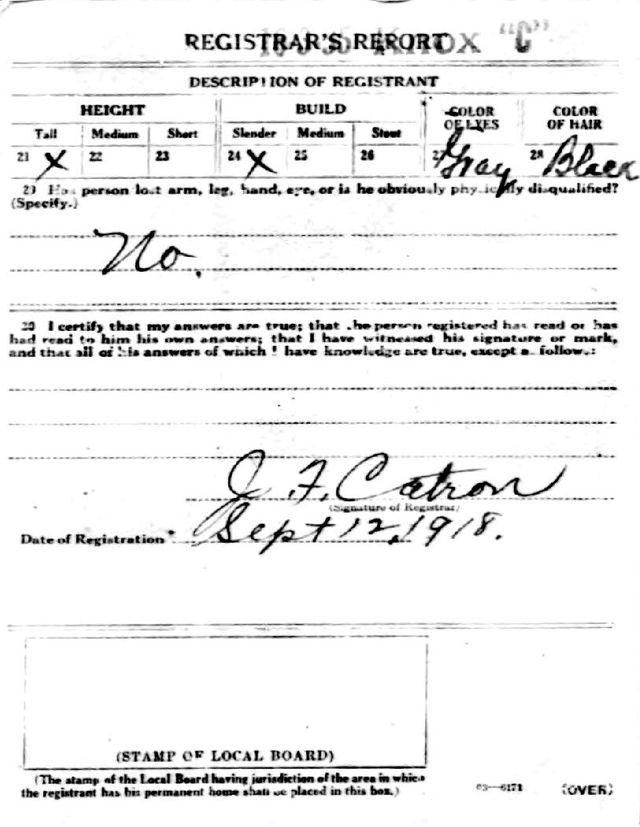 REGISTRAR'S REPORT "C"
DESCRIPTION OF REGISTRANT
HEIGHT BUILD COLOR OF EYES COLOR OF HAIR
Tall Medium Short Slender Medium Stout
21 X 22 23 24 X 25 26 27 Gray 28 Black
29 Has person lost arm, leg, hand, eye, or is he obviously physically disqualified?
(Specify.)
No.
30 I certify that my answers are true; that the person registered has read or has
had read to him his own answers; that I have witnessed his signature or mark,
and that all of his answers of which I have knowledge are true, except as follows:
J. F. Catron
(Signature of Registrar)
Date of Registration Sept 12, 1918.
(STAMP OF LOCAL BOARD)
(The stamp of the Local Board having jurisdiction of the area in which
the registrant has his permanent home shall be placed in this box.)
03—6171 (OVER)